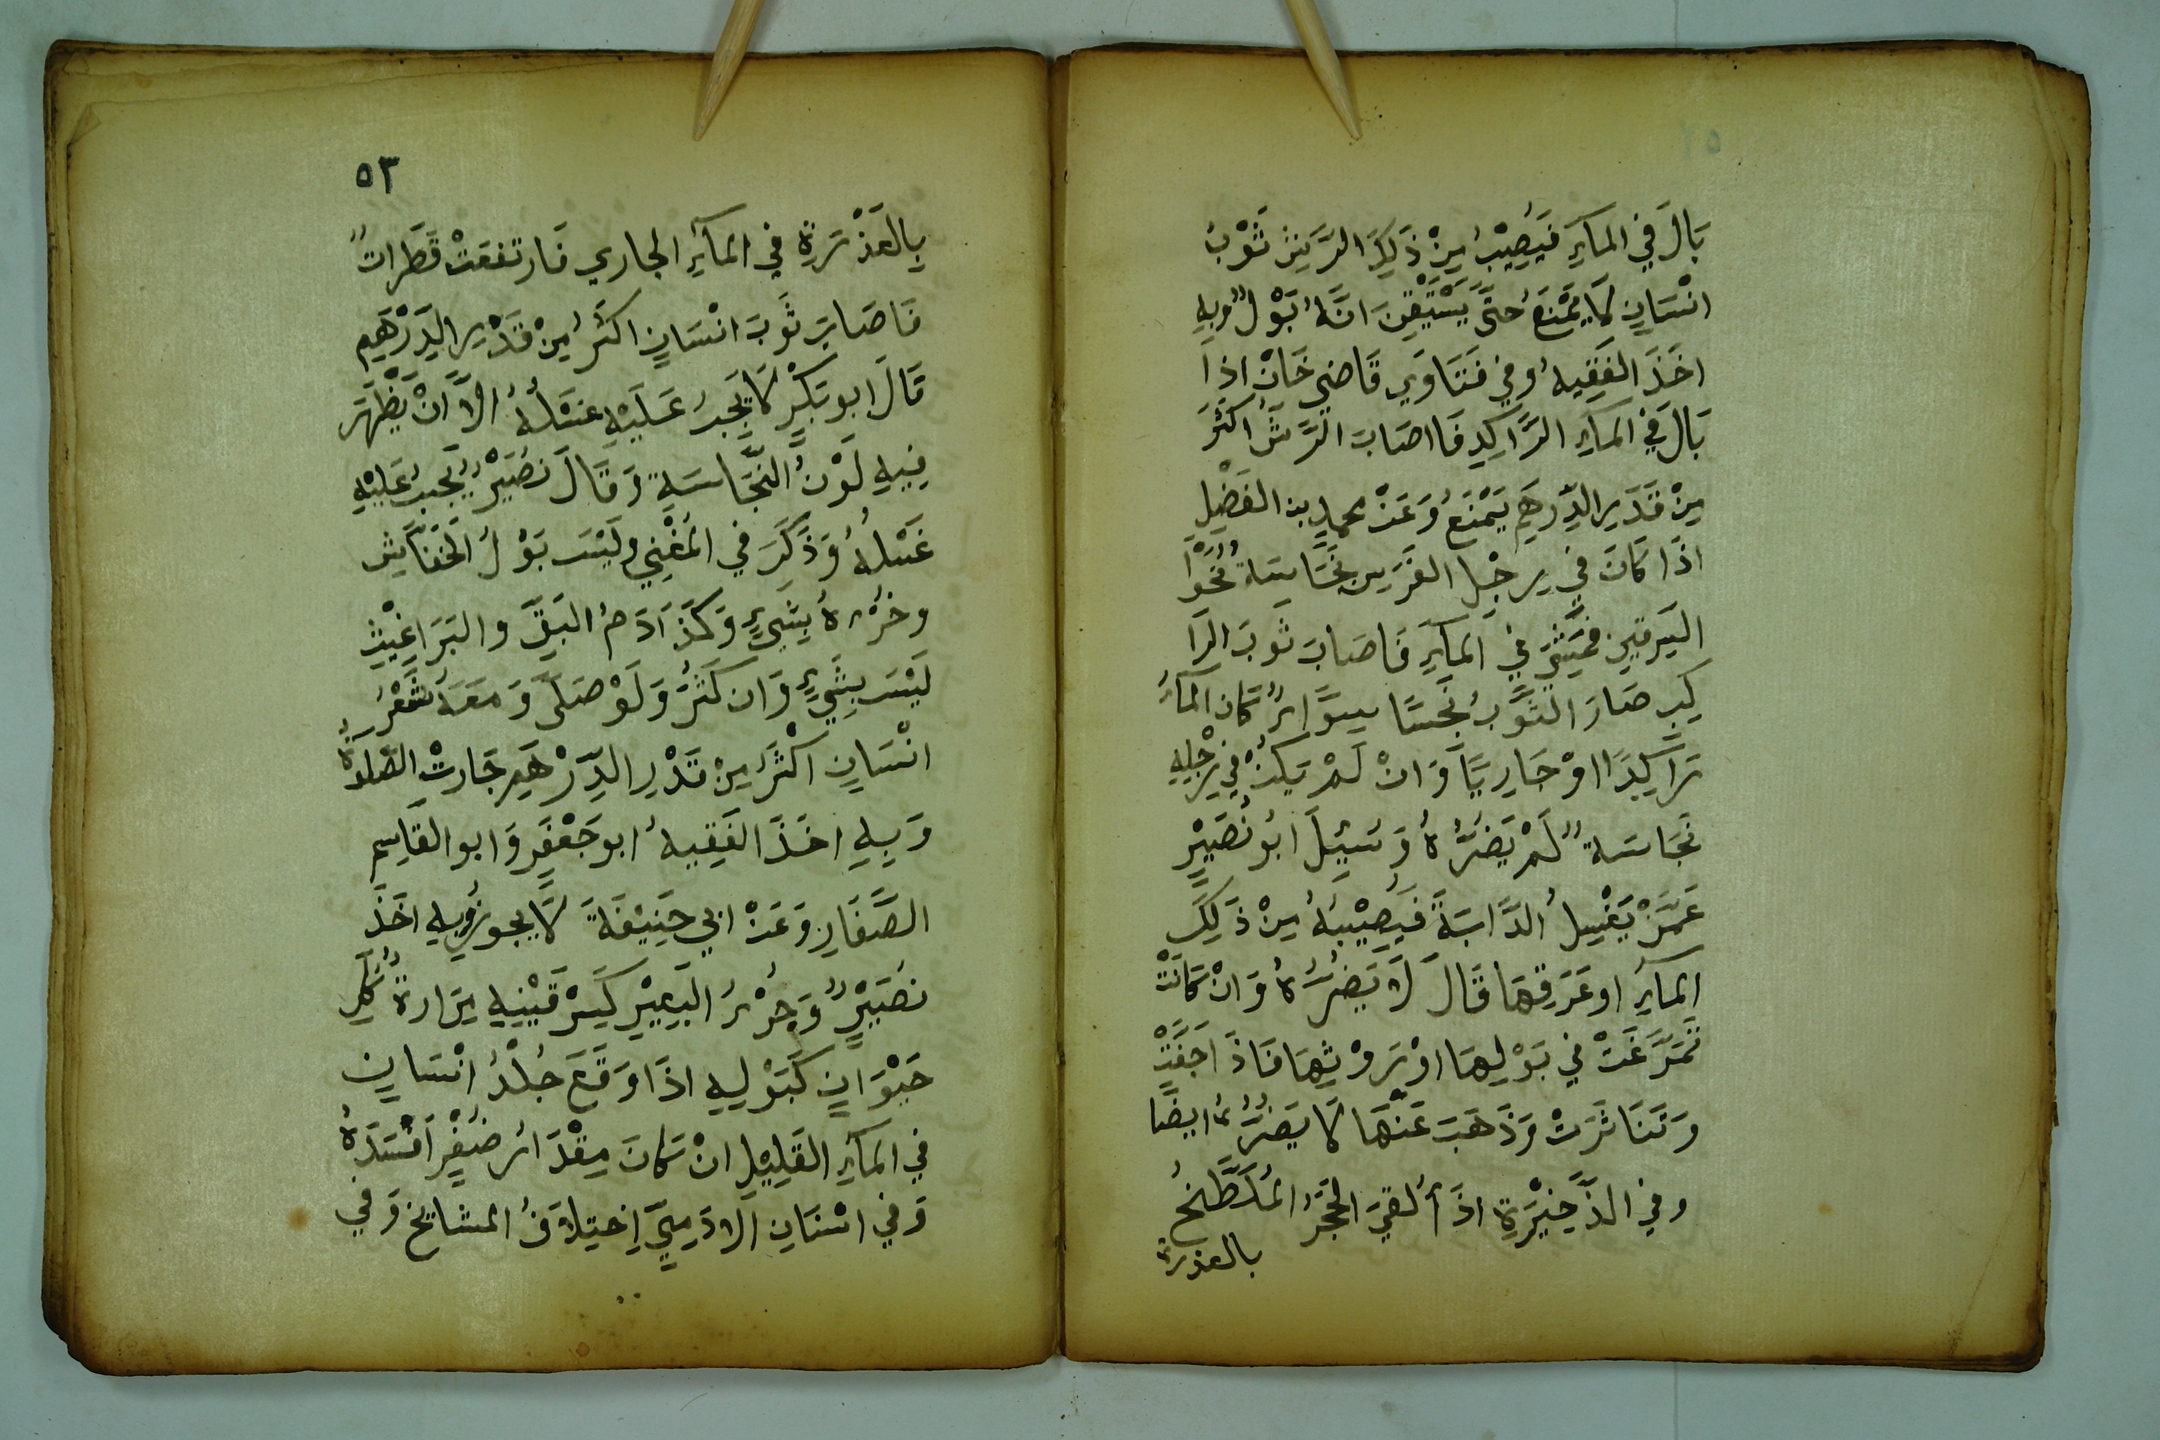 بَالَ في المآءِ فَيُصِيْبُ مِنْ ذَلِكَ الرَّشِ ثَوْبُ
انْسَانٍ لَا يَمْنَعُ حتَّى يَسْتَيْقِنَ انَّهُ بَوْلٌ وبِهِ
اخَذَ الفَقِيهُ وفي فَتَاوَي قَاضي خَانْ اذَا
بَالَ في المآءِ الرَّاكِدِ فَاصَابَ الرَّشُّ اكثَرَ
مِنْ قَدَرِ الدِّرهَمِ يَمْنَعُ وَعَنْ محمدٍ بن الفَضْلِ
اذَا كَانَ في رِجْلِ الفَرَسِ نَجَاسَةٌ نُحْوَ
السَرقينِ فمَشَي في المآءِ فَاصَابَ ثَوبَ الرَا
كِبِ صَارَ الثَّوبُ نَجَسًا سِوَاءٌ كَانَ المآءُ
رَاكِدًا اوْ جَارِيًا وَانْ لَمْ يَكُنْ في رِجْلِهِ
نَجَاسَةٌ لَمْ يَضُرُّهُ وَسُئِلَ ابُو نُصَيْرٍ
عَمَّنْ يَغْسِلُ الدَّابَةَ فَيُصِيْبُهُ مِنْ ذَلِكَ
المآءِ اوعَرَقِهَا قَالَ لَا يَضُرُّهُ وَانْ كَانَتْ
تَمَرَّغَتْ في بَوْلِهَا اوْ رَوْثِهَا فَاذَا جَفَّتْ
وَتَنَاثَرَتْ وَذَهَبَ عَنْهَا لَا يَضُرُّهُ ايضًا
وفي الذَّخِيْرَةِ اذَا أُلقيَ الحَجَرُ المُلَطَّخُ
بالعذرة
٥٣
بِالعَذْرَةِ في المآءِ الجاري فَارتفعَتْ قَطَراتٌ
فَاصَابَ ثَوبَ انْسَانٍ اكثَرُ مِنْ قَدْرِ الدِرْهَمِ
قَالَ ابو بَكرٍ لَا يَجِبُ عَلَيْهِ غَسْلُهُ الَّا انْ يَظْهَرَ
فِيهِ لَوْنُ النَّجَاسَةِ وَقَالَ نُصَيْرٌ يَجبُ عَلَيْهِ
غَسْلهُ وَذَكَرَ في المُغْنِي ولَيْسَ بَوْلُ الخَفَّاشِ
وخُرْءُهُ بِشَيْءٍ وَكَذَا دَمُ البَقِّ والبَرَاغِيْثِ
لَيْسَ بِشَيْءٍ وَان كَثُرَ وَلَوْ صَلَّى وَمَعَهُ شَعْرُ
انْسَانٍ اكْثَرَ مِنْ قَدْرِ الدِّرْهَمِ جَارتْ الصَّلوةُ
وَبِهِ اخَذَ الفَقِيهُ ابو جَعْفَرٍ وَابو القَاسِمِ
الصَّفَارِ وَعَنْ ابي حَنِيْفَةَ لَا يجوزُ وبِهِ اخَذَ
نُصَيْرٌ وَخُرْءُ البَعِيْرِ كَسِرْقَيْنِهِ مِرَارةُ كُلِّ
حَيْوَانٍ كَبَوْلِهِ اذَا وَقَعَ جِلْدُ انْسَانٍ
في المآءِ القَلِيْلِ انْ كَانَ مِقْدَارُ ضُفْرٍ اَفْسَدَهُ
وَفي اسْنَانِ الادَمِيِّ اِختِلافُ المشايخ وَفي